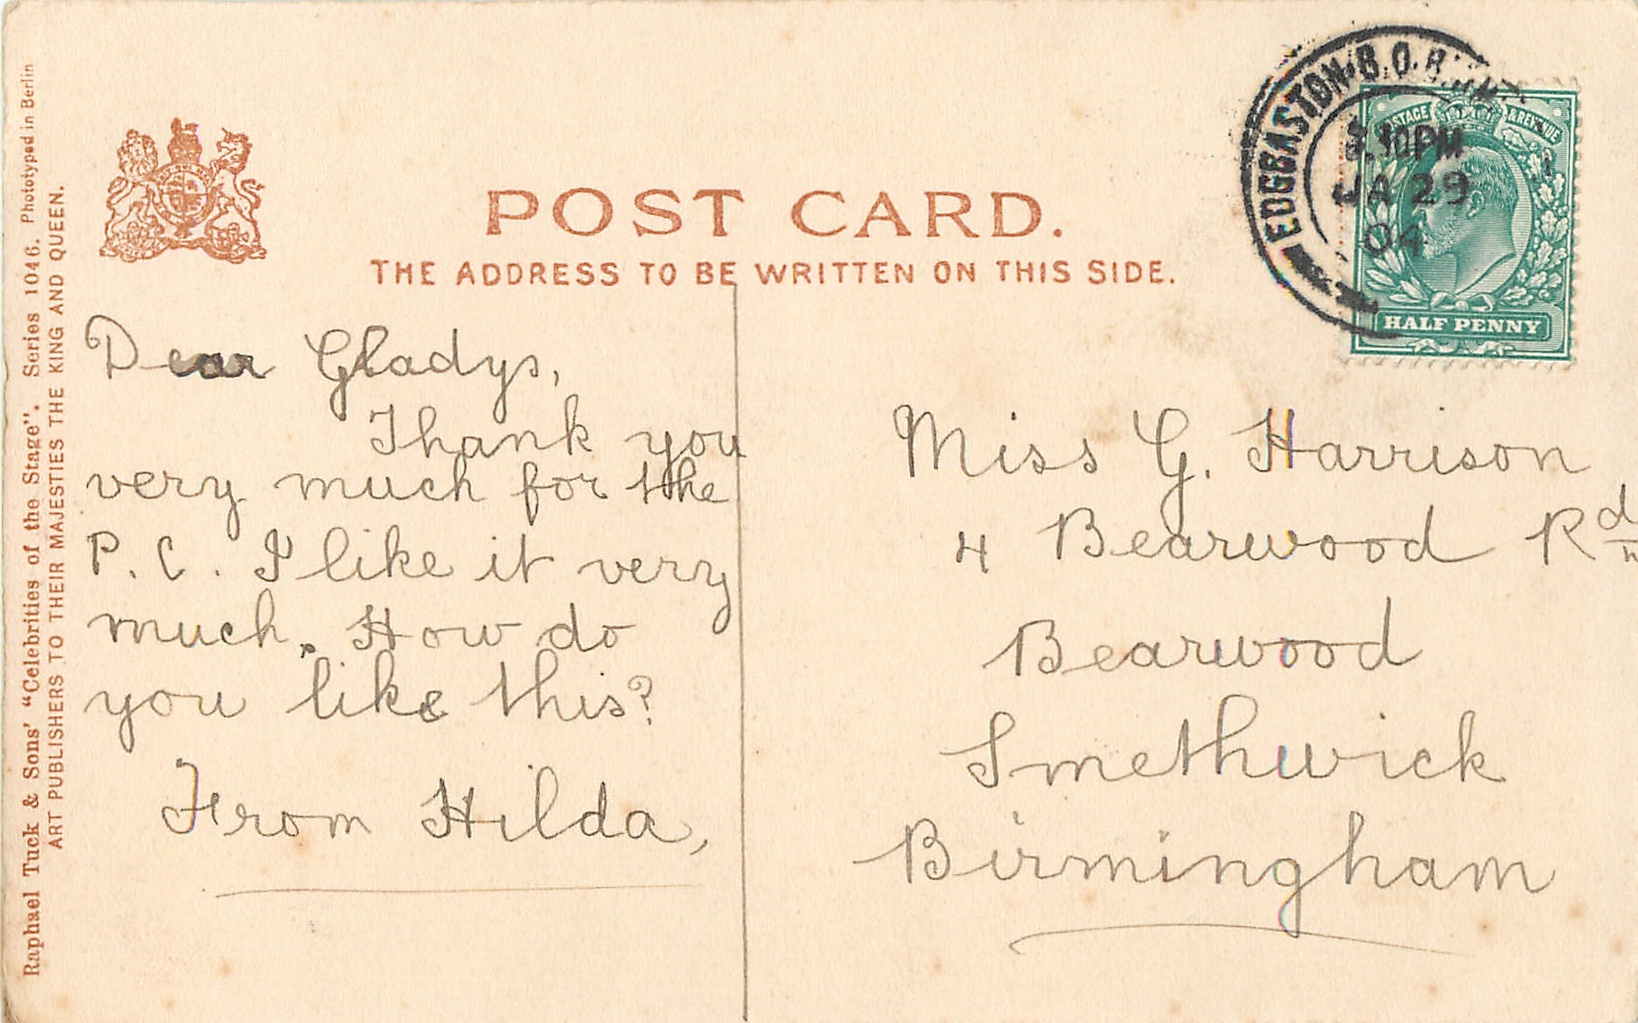 POST CARD.
THE ADDRESS TO BE WRITTEN ON THIS SIDE.
Raphael Tuck & Sons' "Celebrities of the Stage". Series 1046. Phototyped in Berlin
ART PUBLISHERS TO THEIR MAJESTIES THE KING AND QUEEN.
EDGBASTON B.O.
10PM
JA 29
04
POSTAGE & REVENUE
HALF PENNY
Dear Gladys,
Thank you
very much for the
P.C. I like it very
much. How do
you like this?
From Hilda,
Miss G. Harrison
4 Bearwood Rd
Bearwood
Smethwick
Birmingham